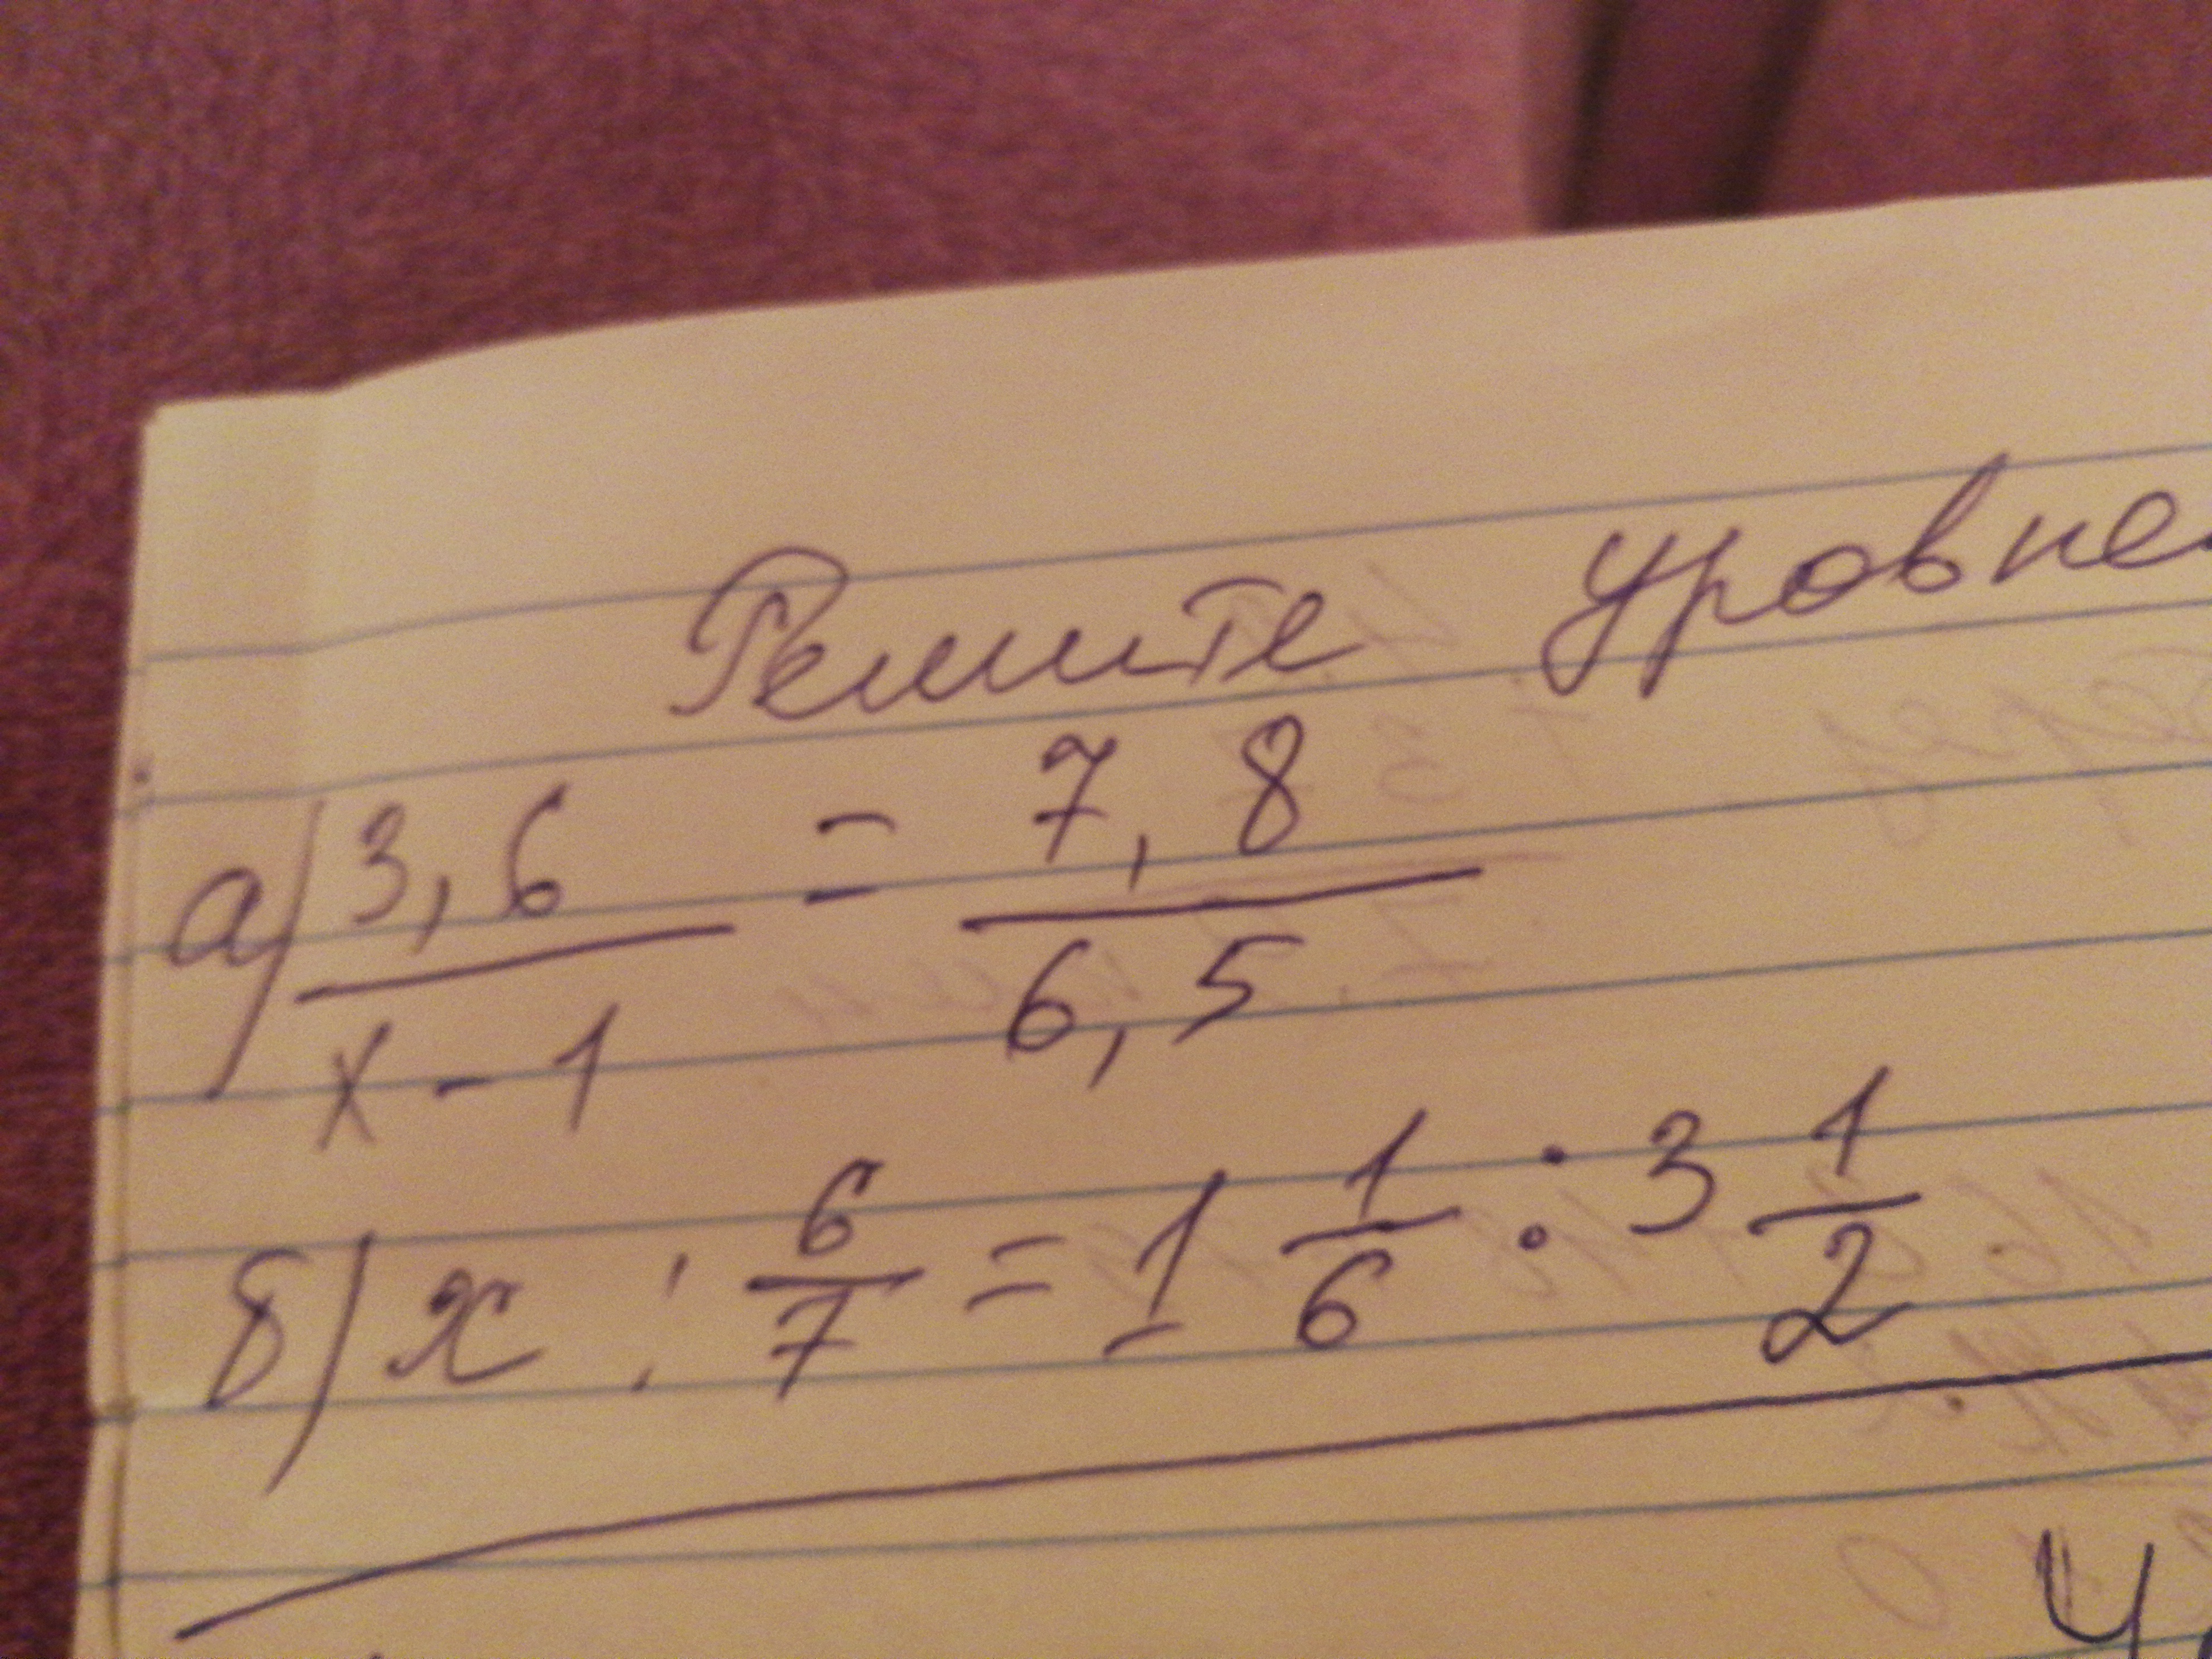 Решите уровне
а) 3,6 / x-1 = 7,8 / 6,5
б) x : 6/7 = 1 1/6 : 3 1/2